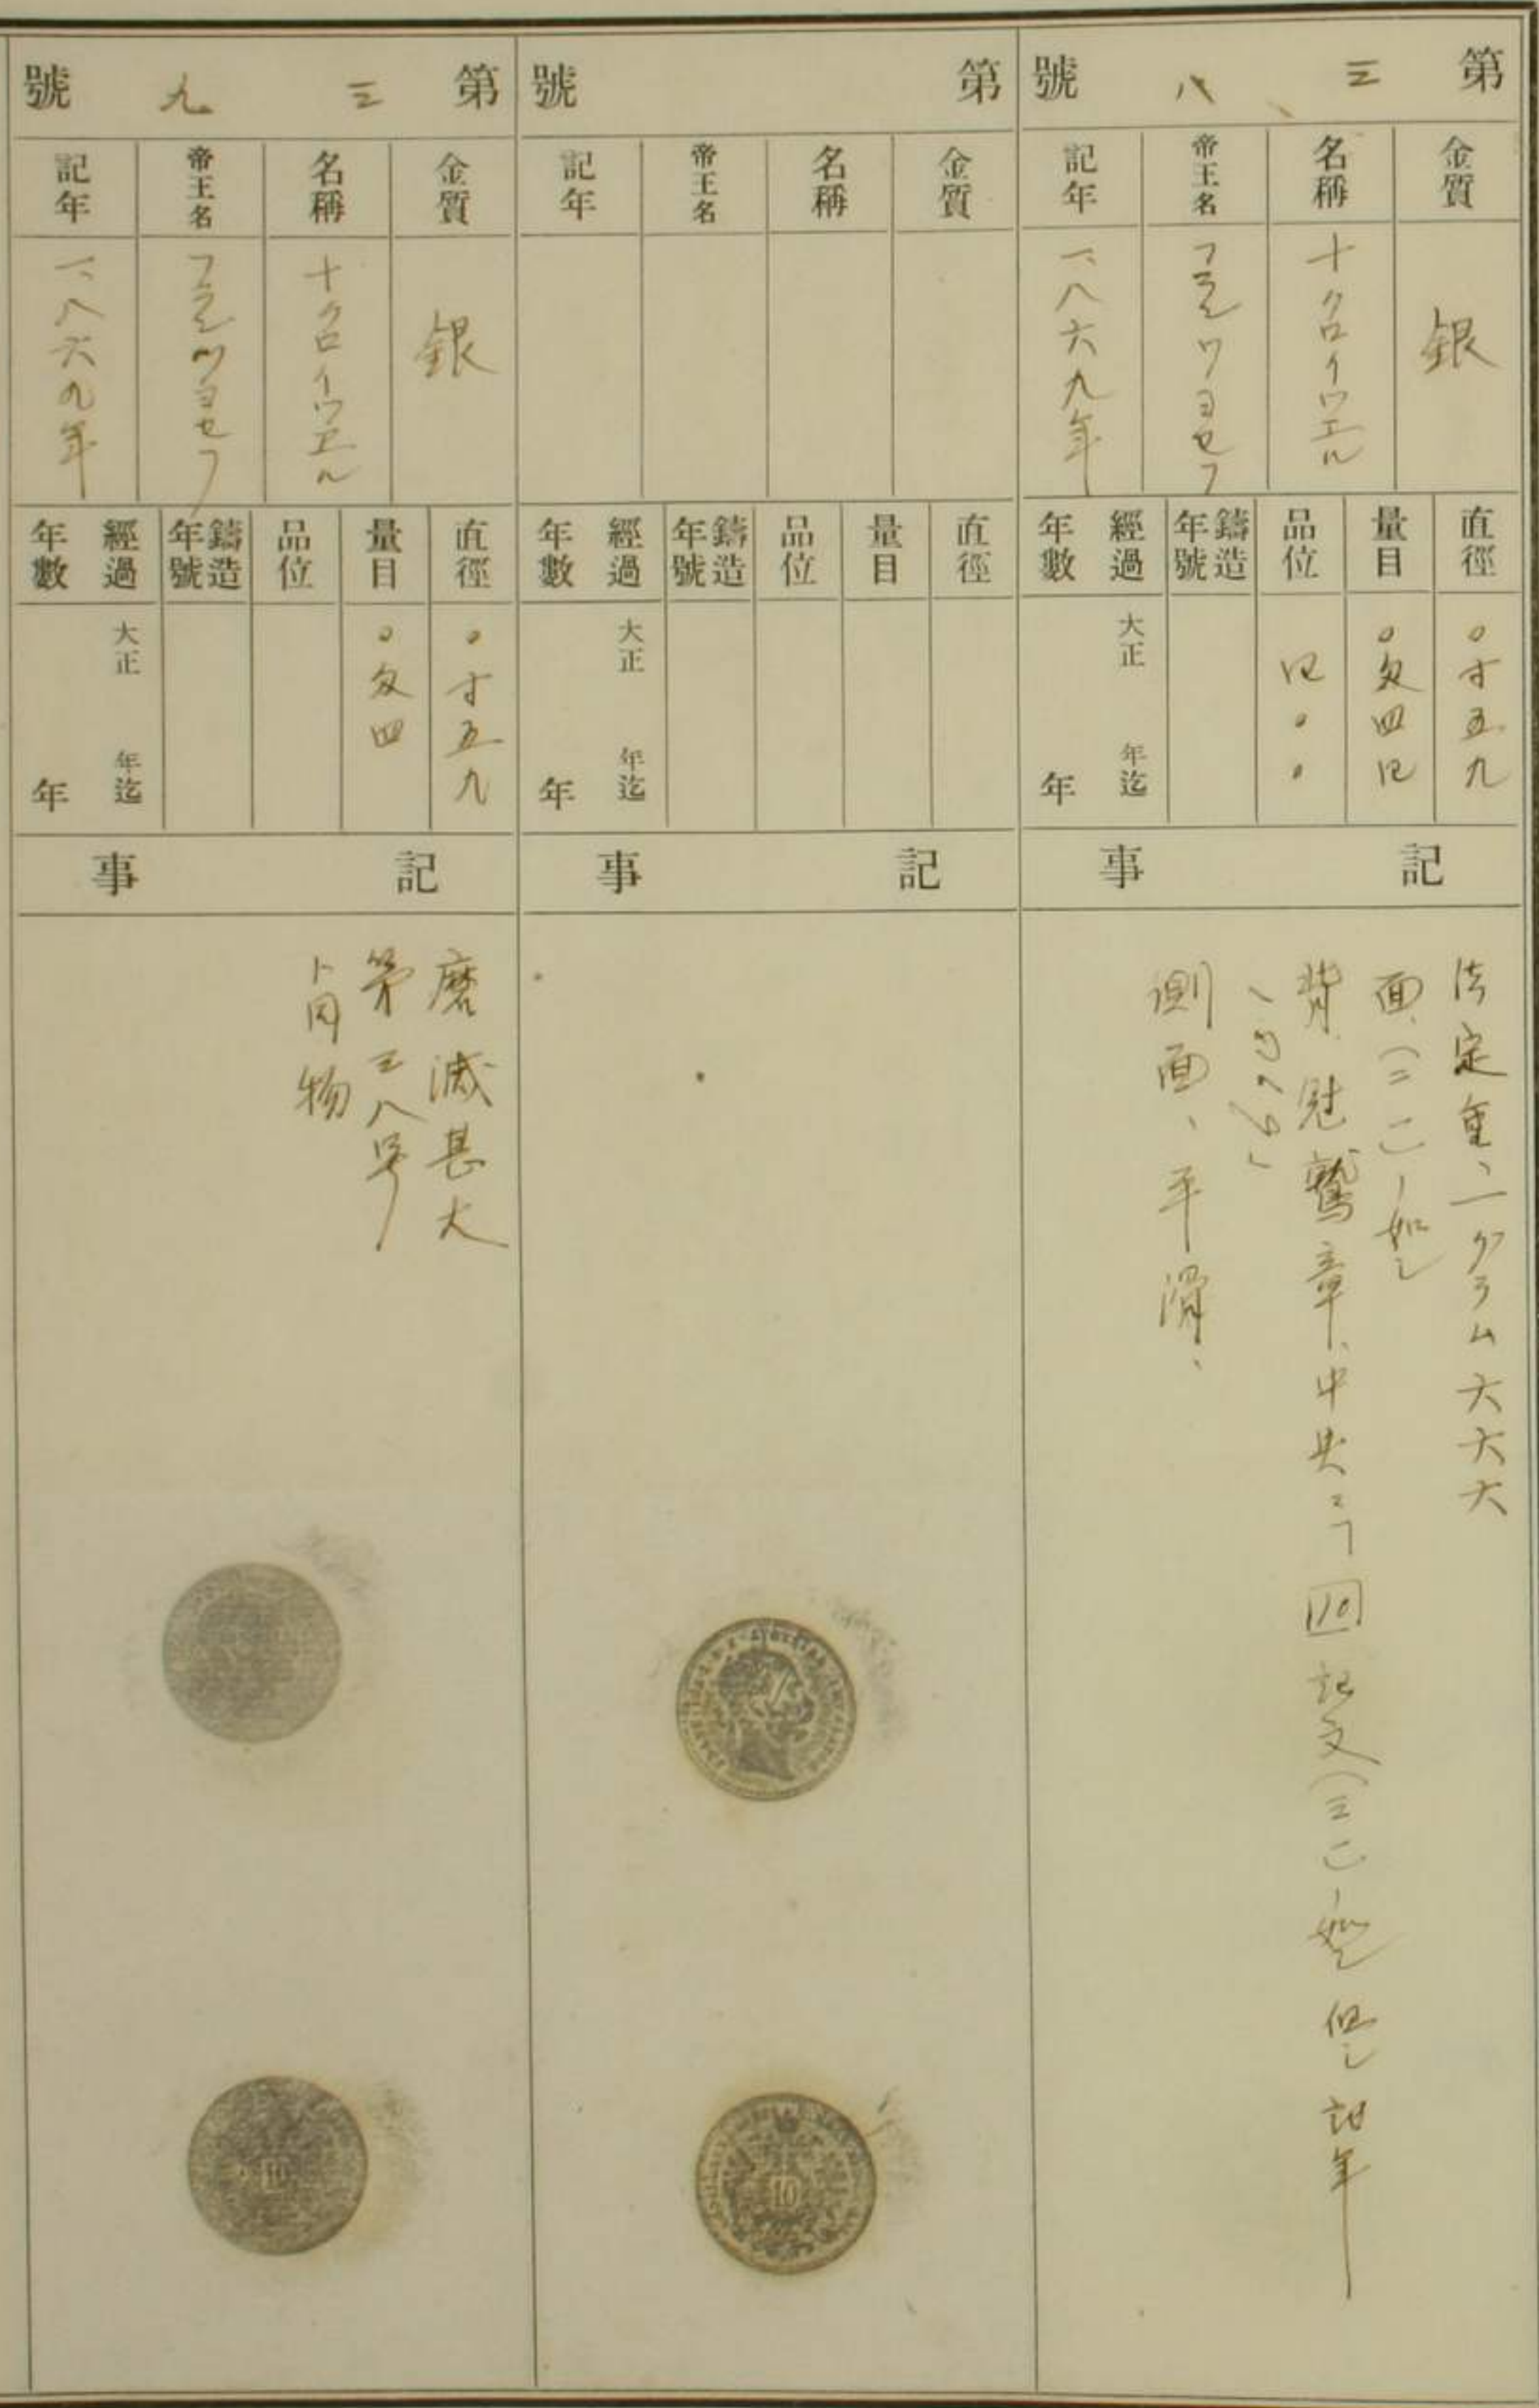 第三八號
金質
銀
名稱
十クロイツエル
帝王名
フランツヨセフ
記年
一八六九年
直徑
〇寸五九
量目
〇匁四四
品位
四〇〇
鑄造年號
經過年數
大正 年迄
年
記事
法定量、一グラム六六六
面、(二二)ノ如シ
背、双鷲章、中央ニ「10」記文(三二)ノ如シ但シ記年
(1869)
側面、平滑、
第 號
金質
名稱
帝王名
記年
直徑
量目
品位
鑄造年號
經過年數
大正 年迄
年
記事
10
第三九號
金質
銀
名稱
十クロイツエル
帝王名
フランツヨセフ
記年
一八六九年
直徑
〇寸五九
量目
〇匁四
品位
鑄造年號
經過年數
大正 年迄
年
記事
磨滅甚大
第三八号
ト同物
10